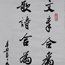 文章合為
歌詩合為